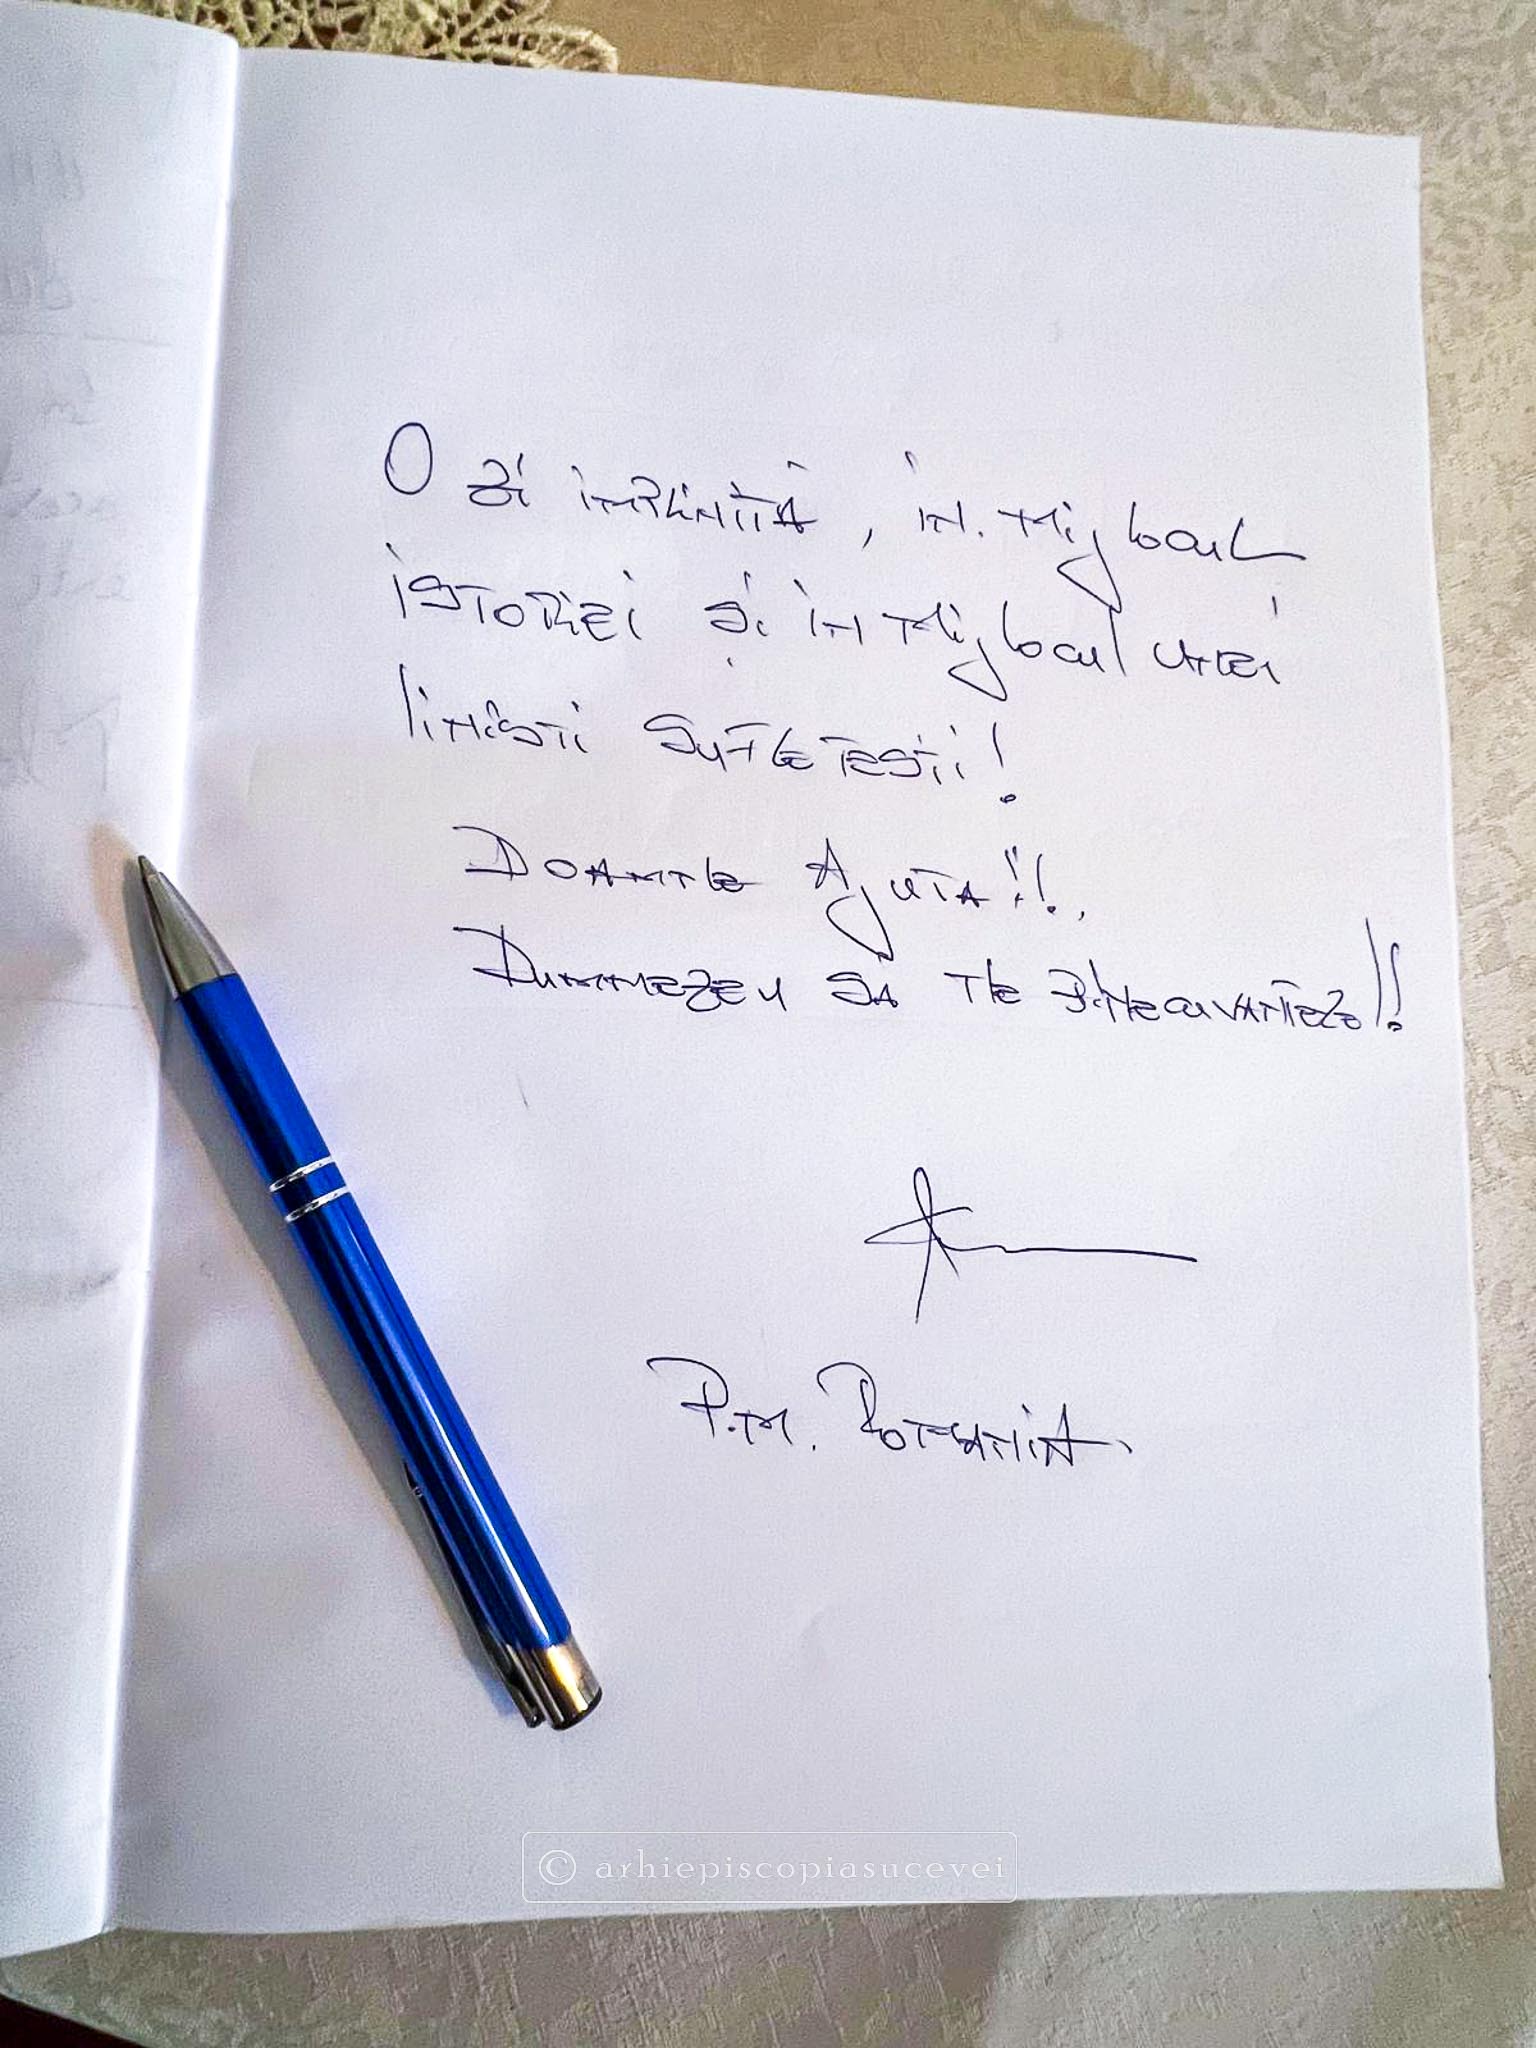 O zi împlinită, în mijlocul
istoriei și în mijlocul unei
liniști sufletești!
Doamne Ajută!!
Dumnezeu să ne binecuvânteze!!
P.M. România
© arhiepiscopiasucevei